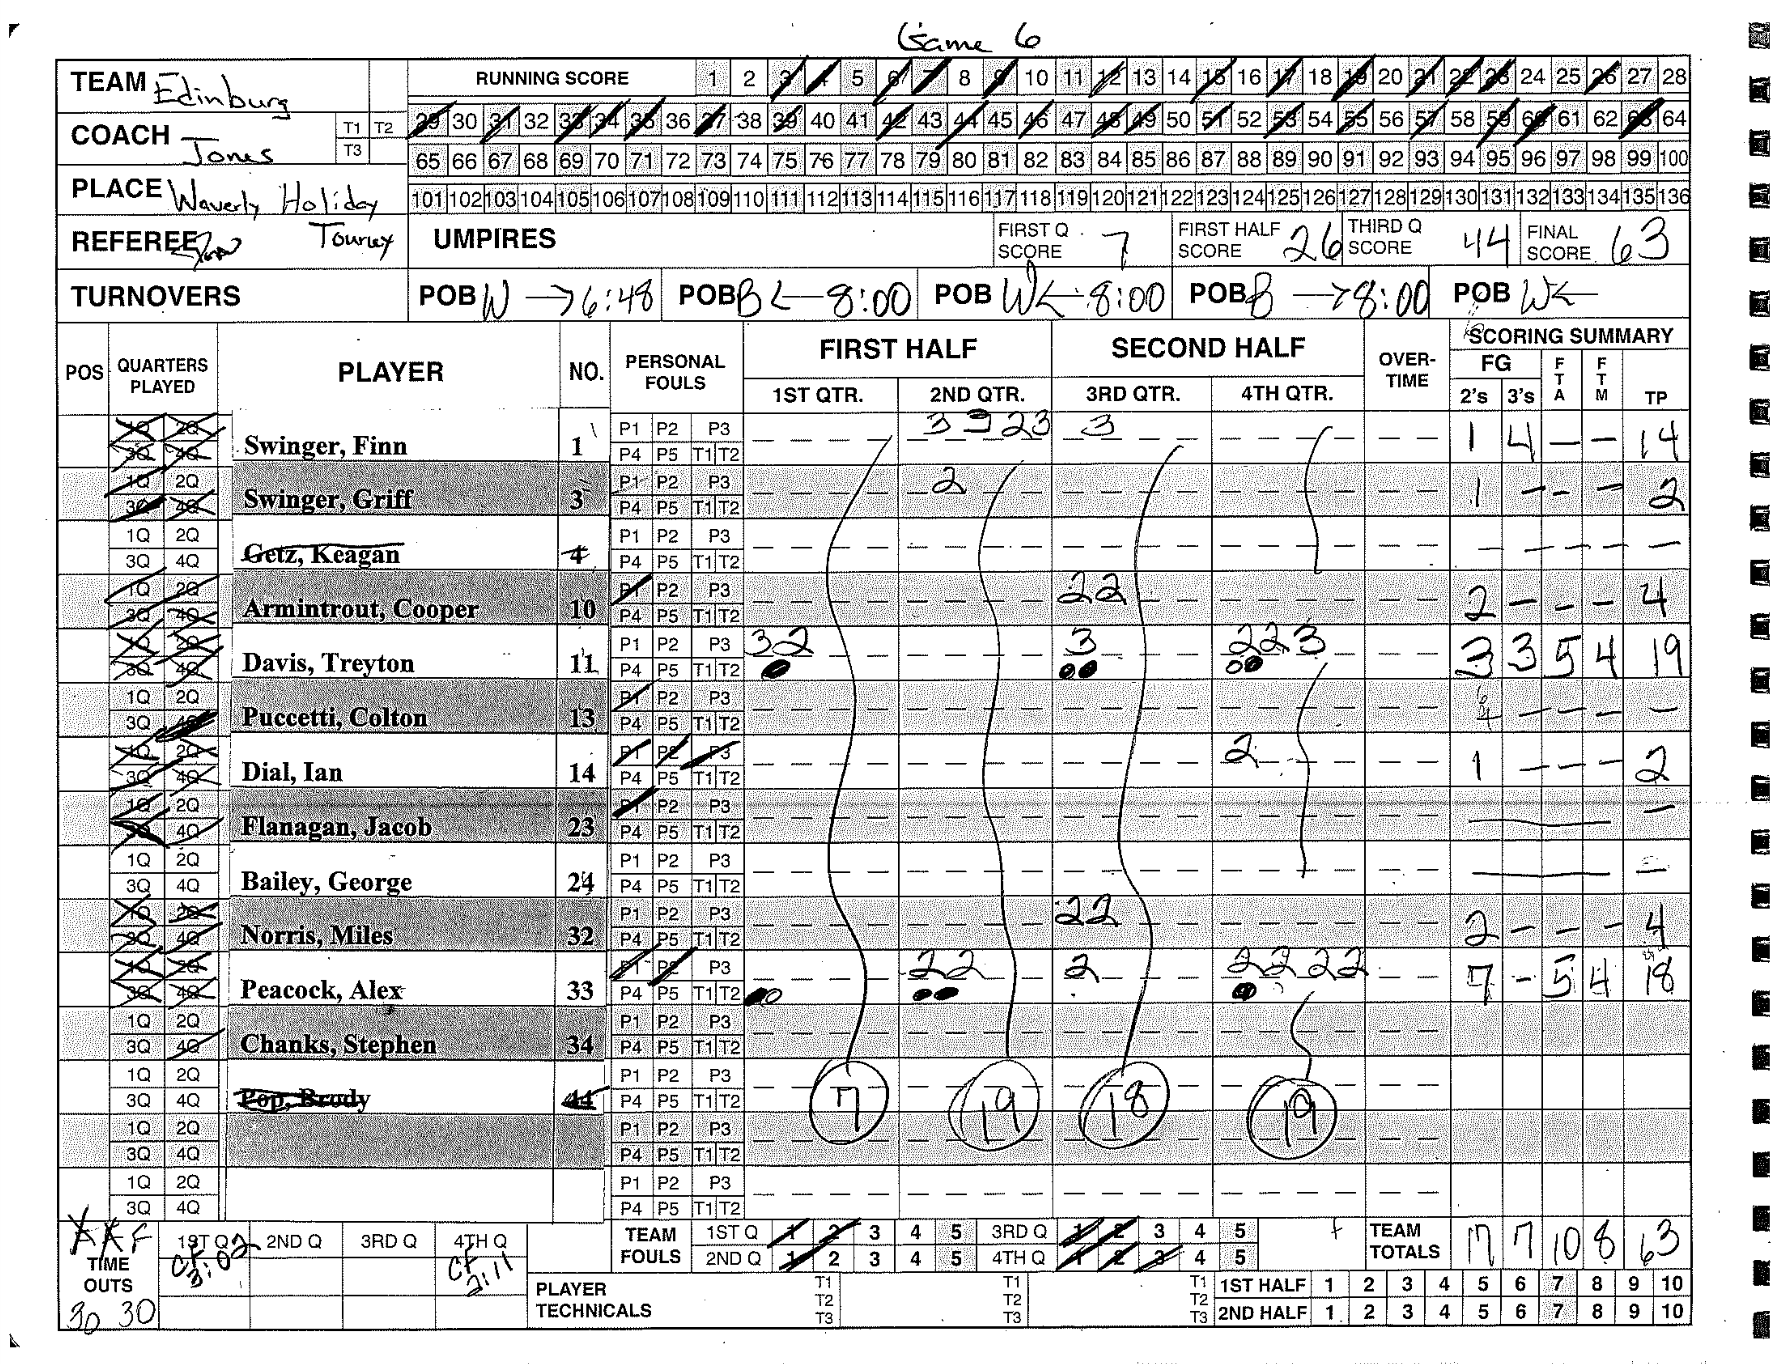 Game 6
TEAM Edinburg
RUNNING SCORE 1 2 3 4 5 6 7 8 9 10 11 12 13 14 15 16 17 18 19 20 21 22 23 24 25 26 27 28
29 30 31 32 33 34 35 36 37 38 39 40 41 42 43 44 45 46 47 48 49 50 51 52 53 54 55 56 57 58 59 60 61 62 63 64
COACH Jones T1 T2 T3
65 66 67 68 69 70 71 72 73 74 75 76 77 78 79 80 81 82 83 84 85 86 87 88 89 90 91 92 93 94 95 96 97 98 99 100
PLACE Waverly Holiday Tourney
101 102 103 104 105 106 107 108 109 110 111 112 113 114 115 116 117 118 119 120 121 122 123 124 125 126 127 128 129 130 131 132 133 134 135 136
REFEREE UMPIRES FIRST Q SCORE 7 FIRST HALF SCORE 26 THIRD Q SCORE 44 FINAL SCORE 63
TURNOVERS POB W → 6:48 POB B ← 8:00 POB W ← 8:00 POB B → 8:00 POB W ←
POS QUARTERS PLAYED PLAYER NO. PERSONAL FOULS FIRST HALF SECOND HALF OVER-TIME SCORING SUMMARY
1ST QTR. 2ND QTR. 3RD QTR. 4TH QTR. FG 2's 3's FTA FTM TP
1Q 2Q P1 P2 P3 3 3 2 3 3
3Q 4Q Swinger, Finn 1 P4 P5 T1 T2 1 4 – – 14
1Q 2Q P1 P2 P3 2
3Q 4Q Swinger, Griff 3 P4 P5 T1 T2 1 – – – 2
1Q 2Q P1 P2 P3
3Q 4Q Getz, Keagan 4 P4 P5 T1 T2 – – – – –
1Q 2Q P1 P2 P3 2 2
3Q 4Q Armintrout, Cooper 10 P4 P5 T1 T2 2 – – – 4
1Q 2Q P1 P2 P3 3 2 3 2 2 3
3Q 4Q Davis, Treyton 11 P4 P5 T1 T2 3 3 5 4 19
1Q 2Q P1 P2 P3
3Q 4Q Puccetti, Colton 13 P4 P5 T1 T2 – – – –
1Q 2Q P1 P2 P3 2
3Q 4Q Dial, Ian 14 P4 P5 T1 T2 1 – – – 2
1Q 2Q P1 P2 P3
3Q 4Q Flanagan, Jacob 23 P4 P5 T1 T2 –
1Q 2Q P1 P2 P3
3Q 4Q Bailey, George 24 P4 P5 T1 T2 –
1Q 2Q P1 P2 P3 2 2
3Q 4Q Norris, Miles 32 P4 P5 T1 T2 2 – – – 4
1Q 2Q P1 P2 P3 2 2 2 2 2 2 2
3Q 4Q Peacock, Alex 33 P4 P5 T1 T2 7 – 5 4 18
1Q 2Q P1 P2 P3
3Q 4Q Chanks, Stephen 34 P4 P5 T1 T2
1Q 2Q P1 P2 P3
3Q 4Q Pop, Brody 44 P4 P5 T1 T2 7 19 18 19
1Q 2Q P1 P2 P3
3Q 4Q P4 P5 T1 T2
1Q 2Q P1 P2 P3
3Q 4Q P4 P5 T1 T2
TIME OUTS 30 30 1ST Q 2ND Q 3RD Q 4TH Q
CF 3:02 CF 2:11
TEAM FOULS 1ST Q 1 2 3 4 5 3RD Q 1 2 3 4 5 TEAM TOTALS 17 7 10 8 63
2ND Q 1 2 3 4 5 4TH Q 1 2 3 4 5
PLAYER TECHNICALS T1 T2 T3 T1 T2 T3 T1 T2 T3
1ST HALF 1 2 3 4 5 6 7 8 9 10
2ND HALF 1 2 3 4 5 6 7 8 9 10